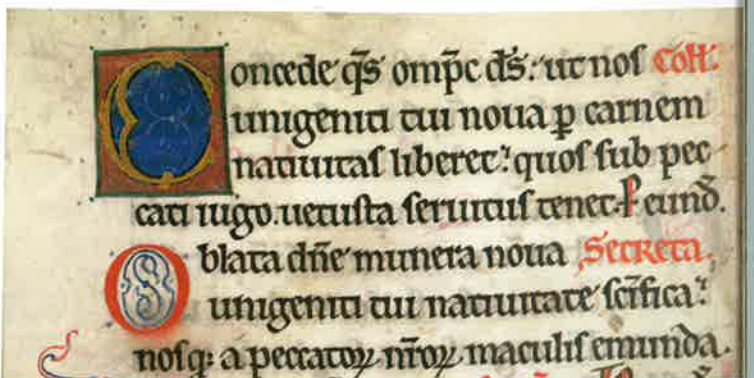 Concede q̄s omp̄c d̄s: ut nos Coll̄.
unigeniti tui noua p̱ carnem
natiuitas liberet: quos sub pec-
cati iugo uetusta seruitus tenet. P eund̄.
Oblata dn̄e munera noua Secreta.
unigeniti tui natiuitate sc̄ifica:
nosq: a peccatoꝝ nr̄oꝝ maculis emunda.